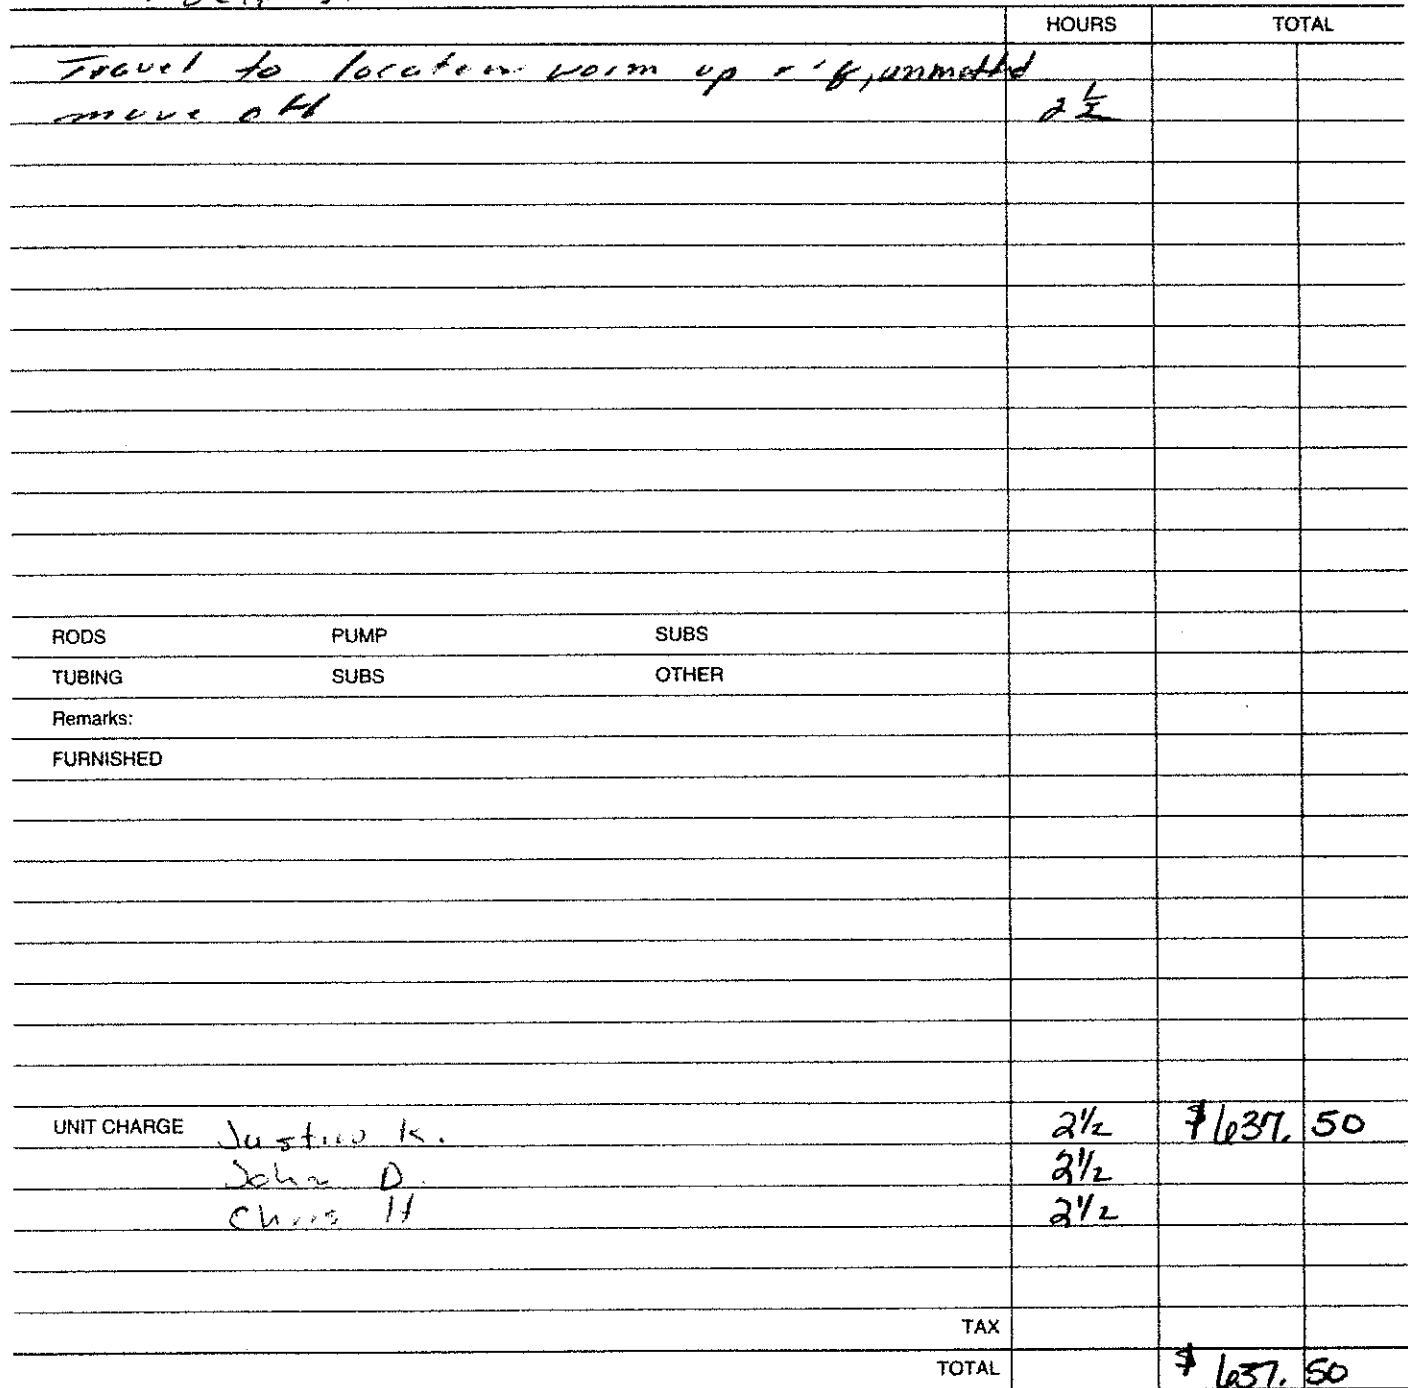 HOURS TOTAL
Travel to location worm up rig, unmatted
move off 2 1/2
RODS PUMP SUBS
TUBING SUBS OTHER
Remarks:
FURNISHED
UNIT CHARGE Justin K. 2 1/2 $637.50
John D. 2 1/2
Chris H 2 1/2
TAX
TOTAL $637.50